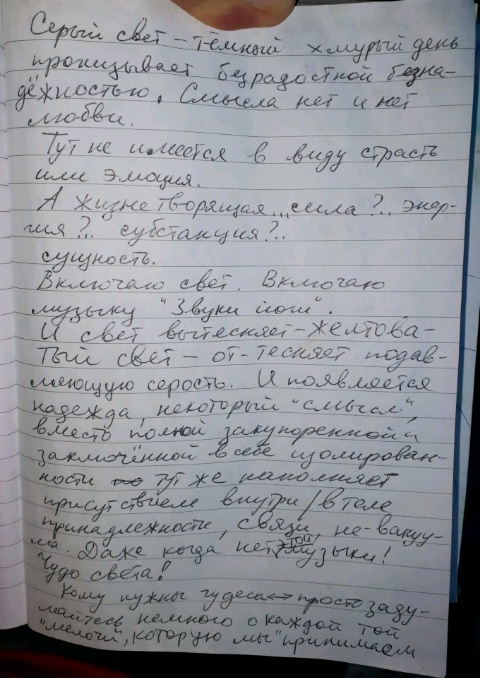 Серый свет – тёмный хмурый день
пронизывает безрадостной безна-
дёжностью. Смысла нет и нет
любви.
Тут не имеется в виду страсть
или эмоция.
А жизнетворящая... сила?.. энер-
гия?.. субстанция?..
сущность.
Включаю свет. Включаю
музыку "Звуки йоги".
И свет вытесняет – желтова-
тый свет – от-тесняет подав-
ляющую серость. И появляется
надежда, некоторый "смысл",
вместо полной закупоренной и
заключённой в себе изолирован-
ности тут же наполняет
присутствием внутри/в теле
принадлежности, связи, не-вакуу-
ма. Даже когда нет этой музыки!
Чудо света!
Кому нужны чудеса – просто заду-
майтесь немного о каждой той
"мелочи", которую мы "принимаем